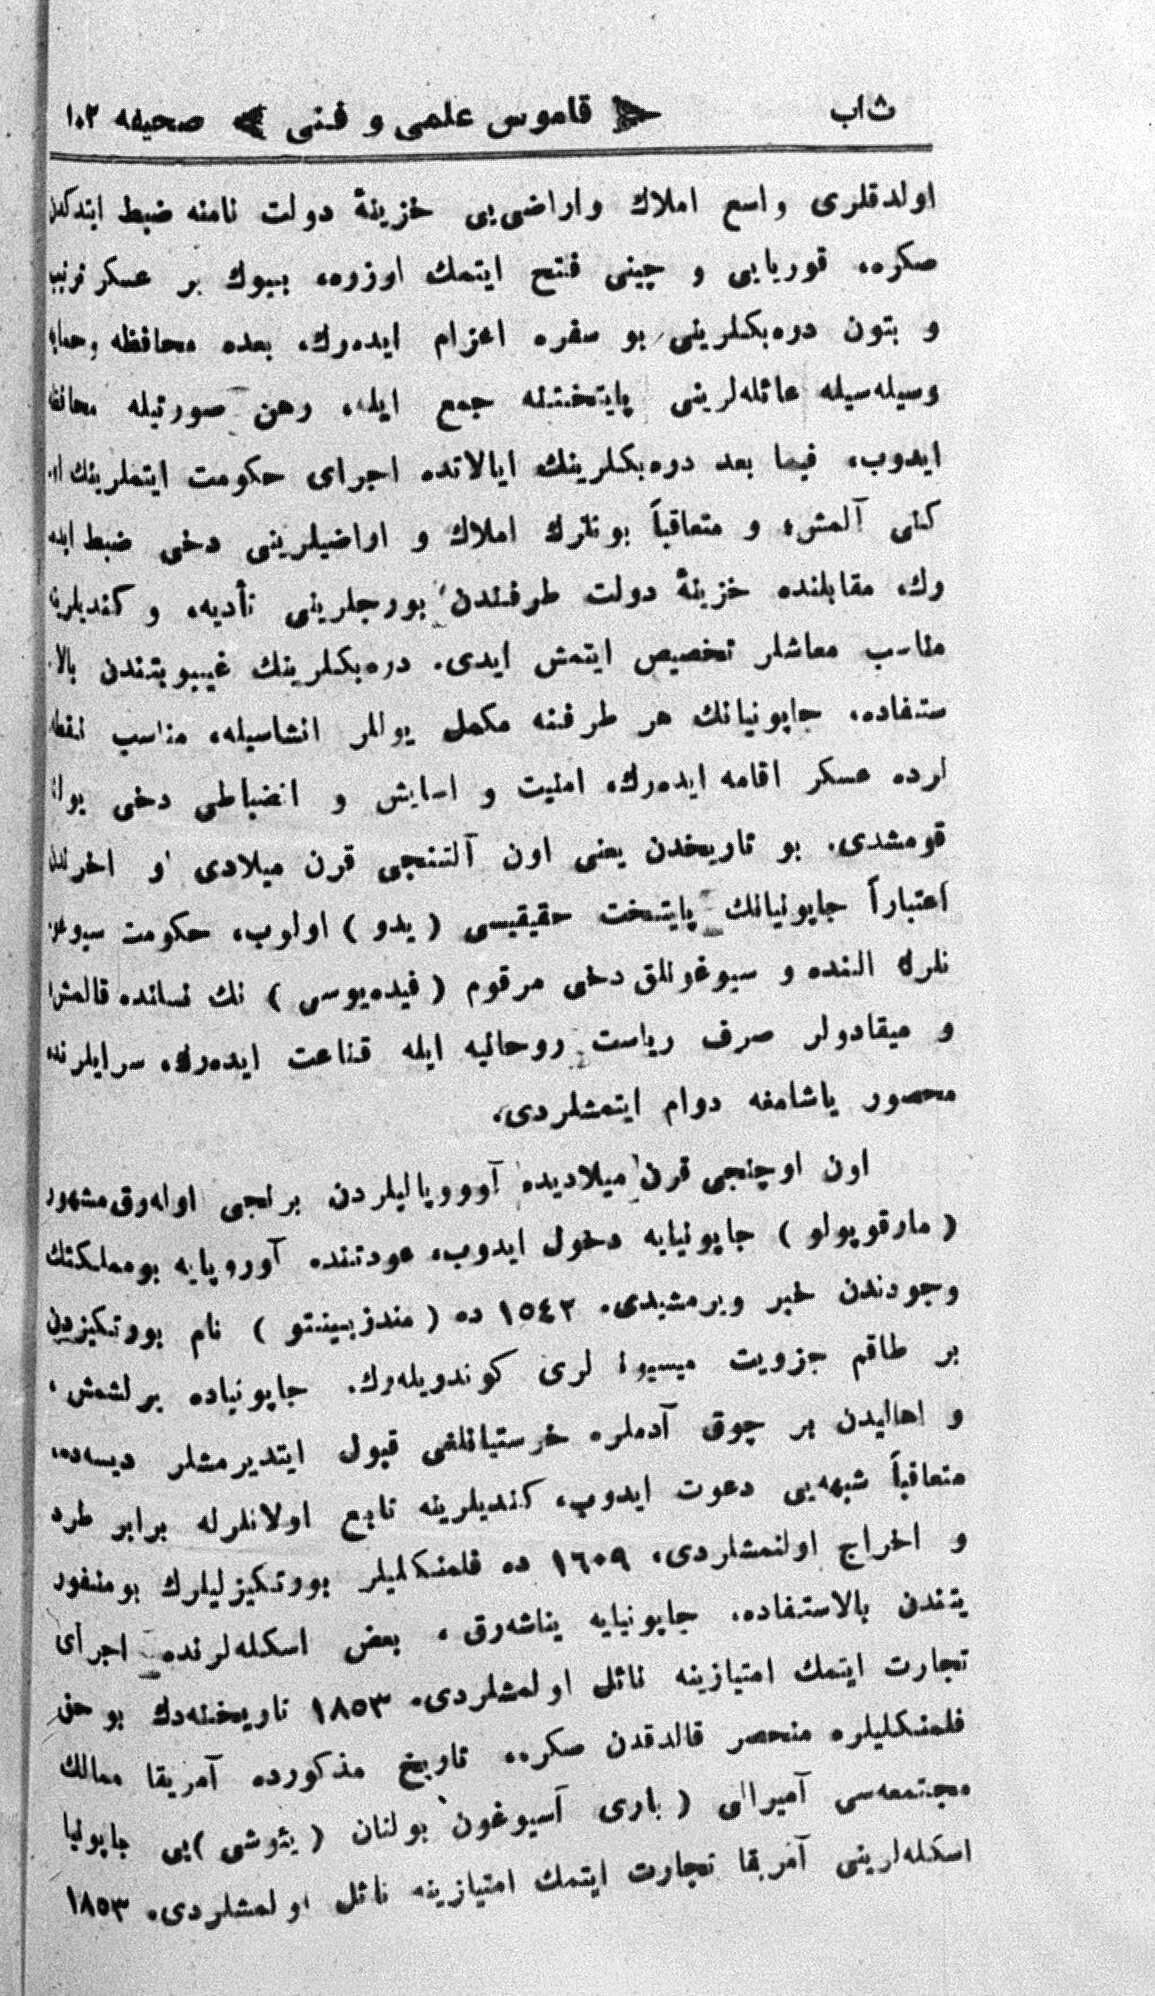 ژاپ قاموس علمی و فنی صحیفه ۱۰۳
اولدقلری واسع املاك واراضی‌یی خزینهٔ دولت نامنه ضبط ایتدکدن
صکره، قوریایی و چینی فتح ایتمك اوزوه، بیوك بر عسکر ترتیب
و بتون دره‌بکلرینی بو سفره اعزام ایده‌رك، بعده محافظه وحمایه
وسیله‌سیله عائله‌لرینی پایتختنه جمع ایله، رهن صورتیله محافظه
ایدوب، فیما بعد دره‌بکلرینك ایالاتده اجرای حکومت ایتملرینك
کنی آلمش، و متعاقباً بونلرك املاك و اراضیلرینی دخی ضبط ایده
رك، مقابلنده خزینهٔ دولت طرفندن بورجلرینی تأدیه، و کندیلرینه
مناسب معاشلر تخصیص ایتمش ایدی. دره‌بکلرینك غیبوبتندن بالا
ستفاده، جاپونیانك هر طرفنه مکمل یوللر انشاسیله، مناسب نقطه
لرده عسکر اقامه ایده‌رك، امنیت و اسایش و انضباطی دخی یولنه
قومشدی. بو تاریخدن یعنی اون آلتنجی قرن میلادی او اخرندن
اعتباراً جاپونیانك پایتخت حقیقیسی ( یدو ) اولوب، حکومت سیوغو
نلرك النده و سیوغونلق دخی مرقوم ( فیده‌یوسی ) نك نسلنده قالمش،
و میقادولر صرف ریاست روحانیه ایله قناعت ایده‌رك، سرایلرنده
محصور یاشامغه دوام ایتمشلردی،
اون اوچنجی قرن میلادیده آوروپالیلردن برنجی اوله‌رق مشهور
( مارقوپولو ) جاپونیایه دخول ایدوب، عودتنده آوروپایه بومملکتك
وجودندن خبر ویرمشیدی. ۱٥٤۲ ده ( مندزپینتو ) نام پورتکیزدن
بر طاقم جزویت میسیونلری کوندریله‌رك. جاپونیاده یرلشمش،
و اهالیدن بر چوق آدملره خرستیانلغی قبول ایتدیرمشلر دیسه‌ده،
متعاقباً شبهه‌یی دعوت ایدوب، کندیلرینه تابع اولانلرله برابر طرد
و اخراج اولنمشلردی، ۱٦۰۹ ده فلمنکلیلر پورتکیزلیلرك بومنفور
یتندن بالاستفاده، جاپونیایه یناشه‌رق، بعض اسکله‌لرنده اجرای
تجارت ایتمك امتیازینه نائل اولمشلردی. ۱۸٥۳ تاریخنه‌دك بوحق
فلمنکلیلره منحصر قالدقدن صکره، تاریخ مذکورده آمریقا ممالك
مجتمعه‌سی آمیرالی ( پاری آسیوغون بولنان ( یئوشی )یی جاپونیا
اسکله‌لرینی آمریقا تجارت ایتمك امتیازینه نائل اولمشلردی. ۱۸٥۳